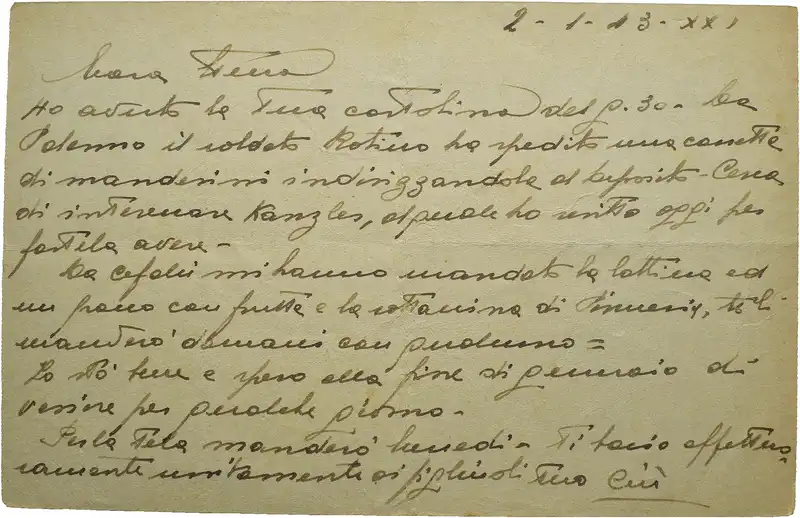 2 - 1 - 43 - XXI
Cara
Ho avuto la tua cartolina del g. 30 - Da
Palermo il soldato Rotino ha spedito una cassetta
di manderini indirizzandola al deposito - Cerca
di interessare Kanzler, al quale ho scritto oggi per
fartela avere -
Da Cefalù mi hanno mandato la lattina ed
un pacco con frutta e la sottanina di, te li
manderò domani con qualcuno =
Io stò bene e spero alla fine di gennaio di
venire per qualche giorno -
Per la tela manderò lunedi - Ti bacio affettuo-
samente unitamente ai figliuoli tuo